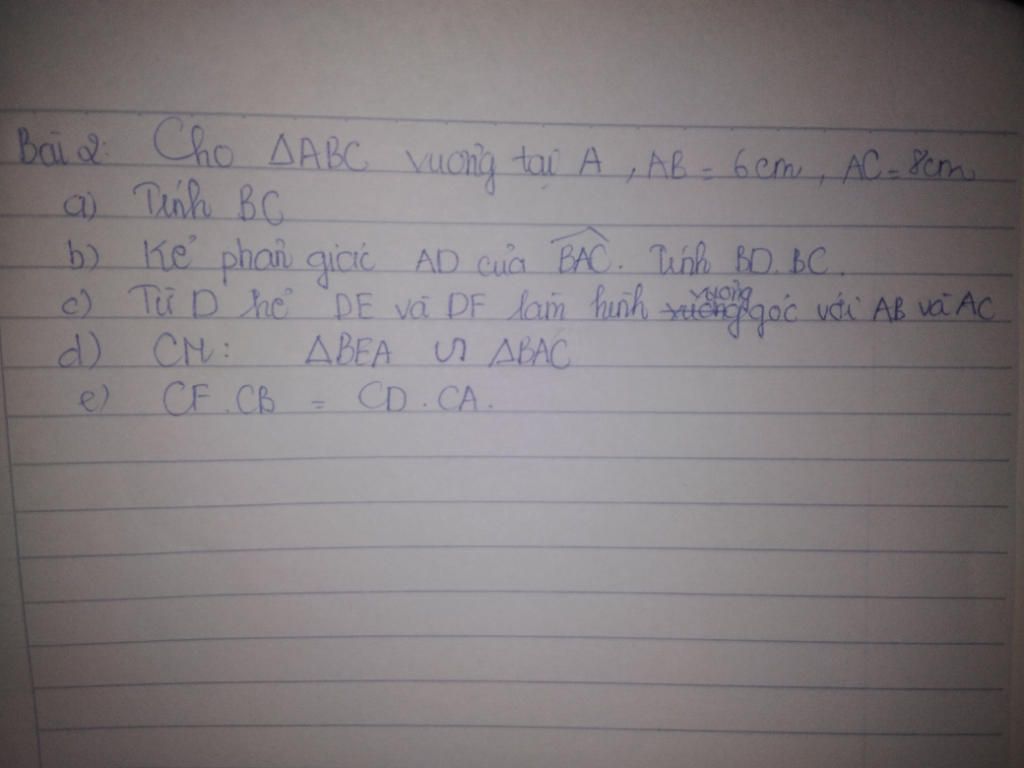 Bài 2: Cho ΔABC vuông tại A, AB = 6cm, AC = 8cm
a) Tính BC
b) Kẻ phân giác AD của BAC. Tính BD.BC.
c) Từ D kẻ DE và DF lần hình vuông góc với AB và AC
d) CM: ΔBEA ∽ ΔBAC
e) CF.CB = CD.CA.